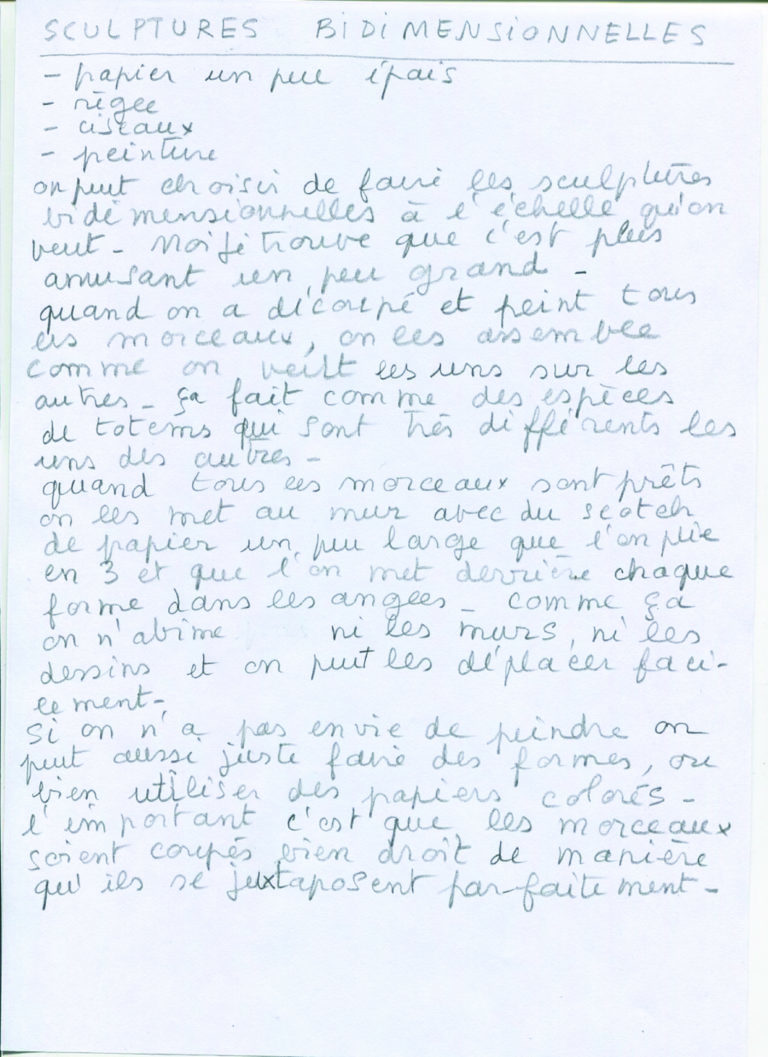 SCULPTURES BIDIMENSIONNELLES
- papier un peu épais
- règle
- ciseaux
- peinture
on peut choisir de faire les sculptures
bidimensionnelles à l'échelle qu'on
veut - Moi je trouve que c'est plus
amusant un peu grand -
quand on a découpé et peint tous
les morceaux, on les assemble
comme on veut les uns sur les
autres - ça fait comme des espèces
de totems qui sont très différents les
uns des autres -
quand tous les morceaux sont prêts
on les met au mur avec du scotch
de papier un peu large que l'on plie
en 3 et que l'on met derrière chaque
forme dans les angles - comme ça
on n'abîme ni les murs, ni les
dessins et on peut les déplacer faci-
lement -
Si on n'a pas envie de peindre on
peut aussi juste faire des formes, ou
bien utiliser des papiers colorés -
l'important c'est que les morceaux
soient coupés bien droit de manière
qu'ils se juxtaposent parfaitement -